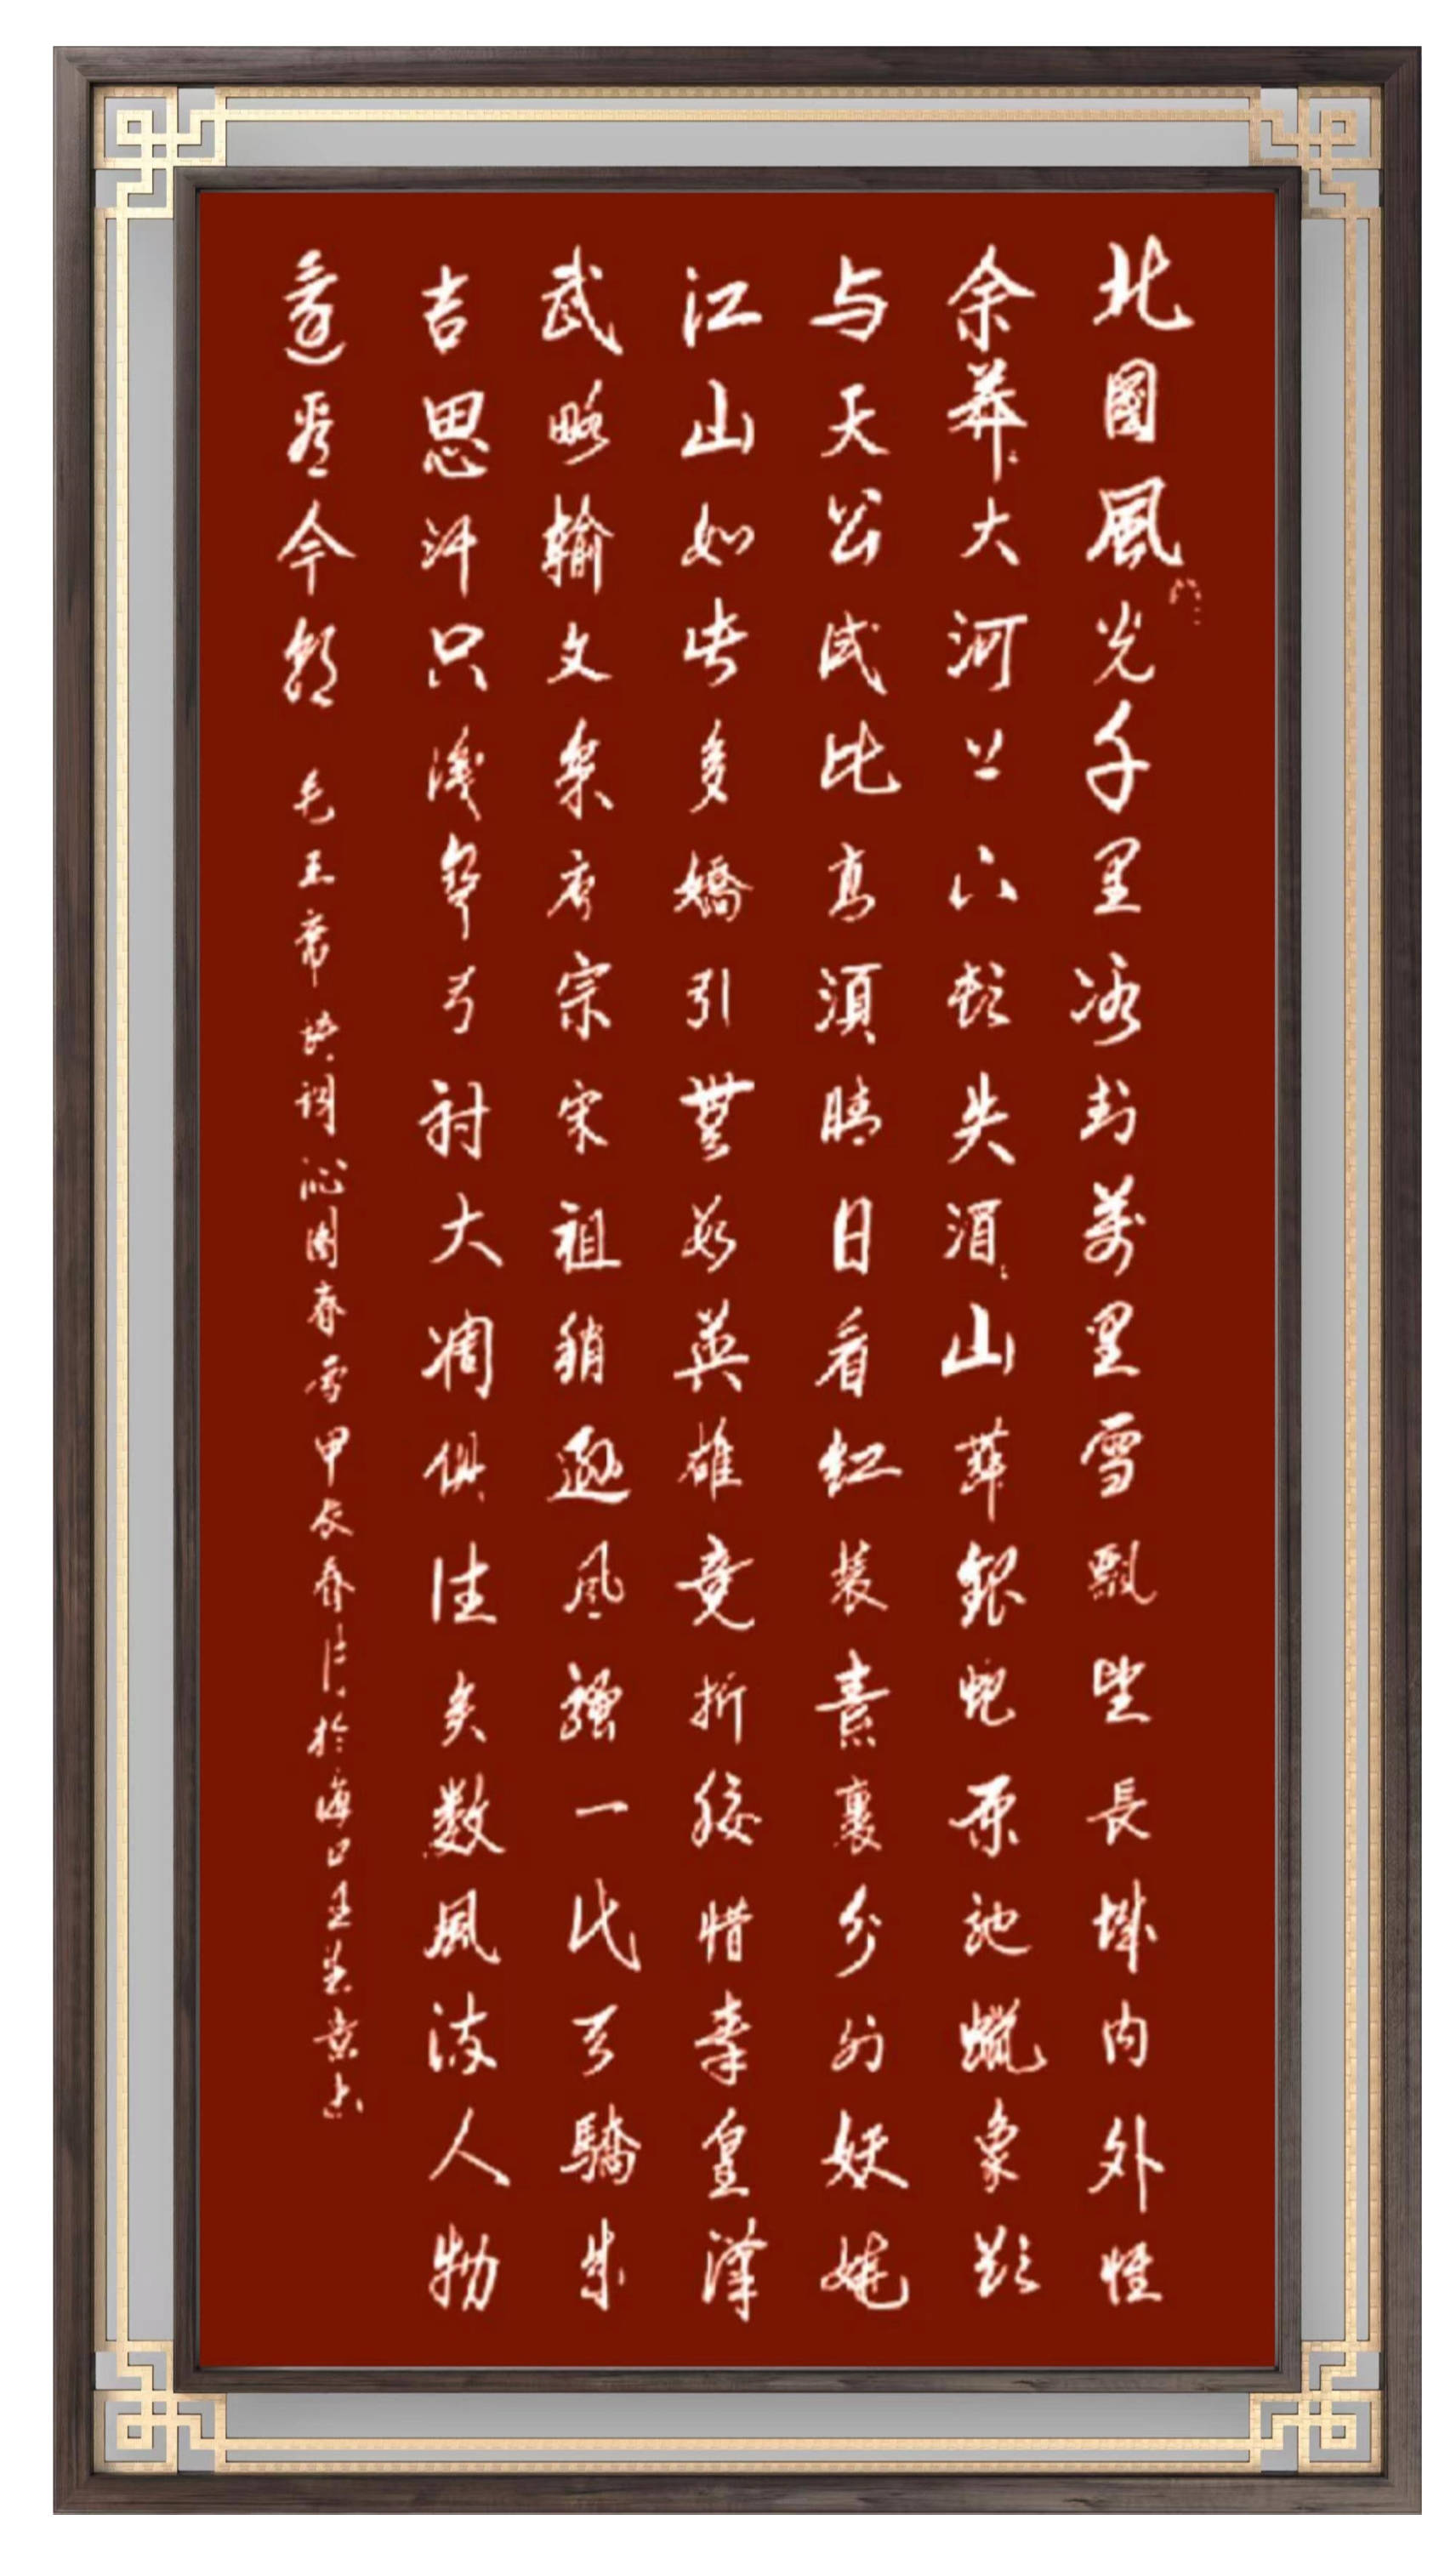 北國風光千里冰封萬里雪飄望長城内外惟
余莽々大河上下頓失滔々山舞銀蛇原馳蠟象欲
与天公试比高須晴日看紅裝素裹分外妖嬈
江山如此多嬌引無数英雄竞折腰惜秦皇漢
武略輸文采唐宗宋祖稍遜風騷一代天驕成
吉思汗只識彎弓射大雕俱往矣数風流人物
還看今朝 毛主席诗詞沁園春雪甲辰春月於海口